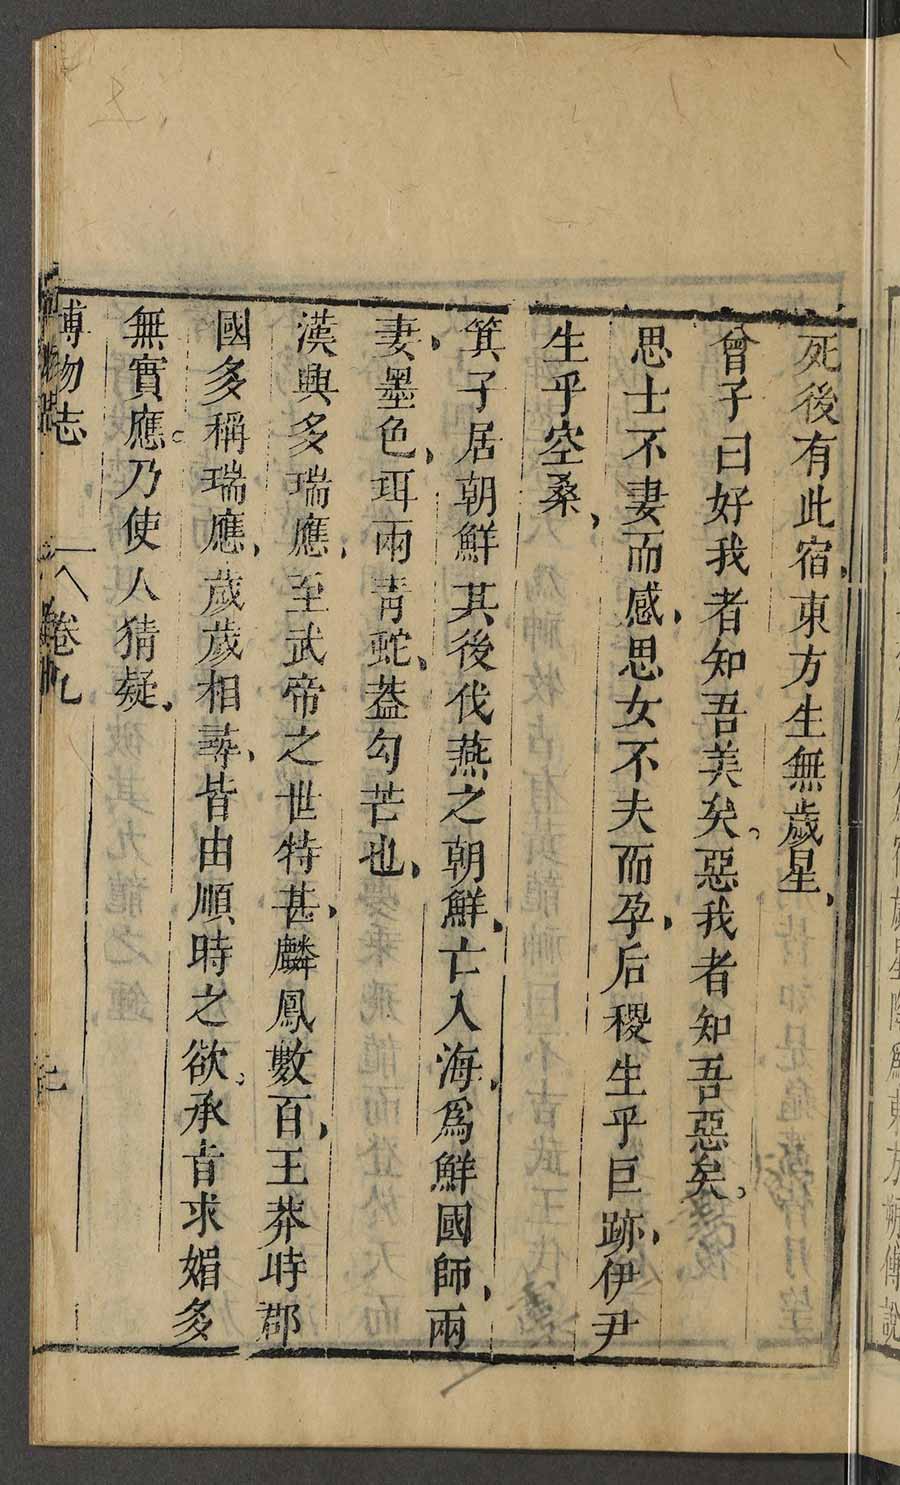 死後有此宿、東方生無歲星、
曾子曰好我者知吾美矣。惡我者知吾惡矣。
思士不妻而感、思女不夫而孕、后稷生乎巨跡、伊尹
生乎空桑、
箕子居朝鮮其後伐燕之朝鮮、亡入海、爲鮮國師、兩
妻、墨色、珥兩青蛇、葢勾芒也、
漢興多瑞應、至武帝之世特甚、麟鳳數百、王莽時郡
國多稱瑞應、歲歲相尋、皆由順時之欲。承旨求媚多
無實應。乃使人猜疑、
博物志 卷九